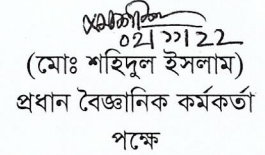 ০২/১১/২২
(মোঃ শহিদুল ইসলাম)
প্রধান বৈজ্ঞানিক কর্মকর্তা
পক্ষে